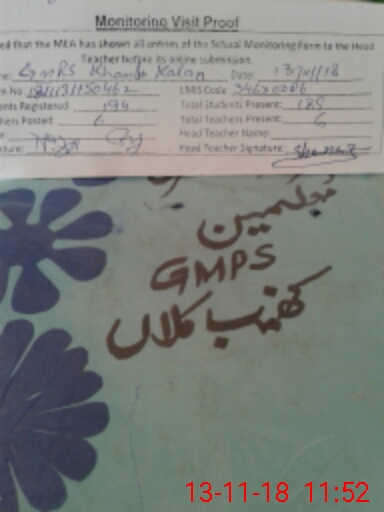 Monitoring Visit Proof
ed that the MEA has shown all entries of the School Monitoring Form to the Head
Teacher before its online submission.
GMPS Khamb Kalan Date: 13/11/18
m No LMIS Code
nts Registered 194 Total Students Present: 185
hers Posted 6 Total Teachers Present: 6
Head Teacher Name:
ature: Head Teacher Signature:
معلمین
GMPS
کھنب کلاں
13-11-18 11:52